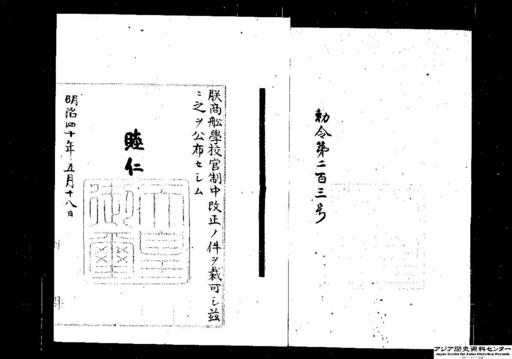 勅令第二百三号
朕商舩學校官制中改正ノ件ヲ裁可シ茲
ニ之ヲ公布セシム
睦仁
天皇御璽
明治四十年五月十八日
アジア歴史資料センター
Japan Center for Asian Historical Records